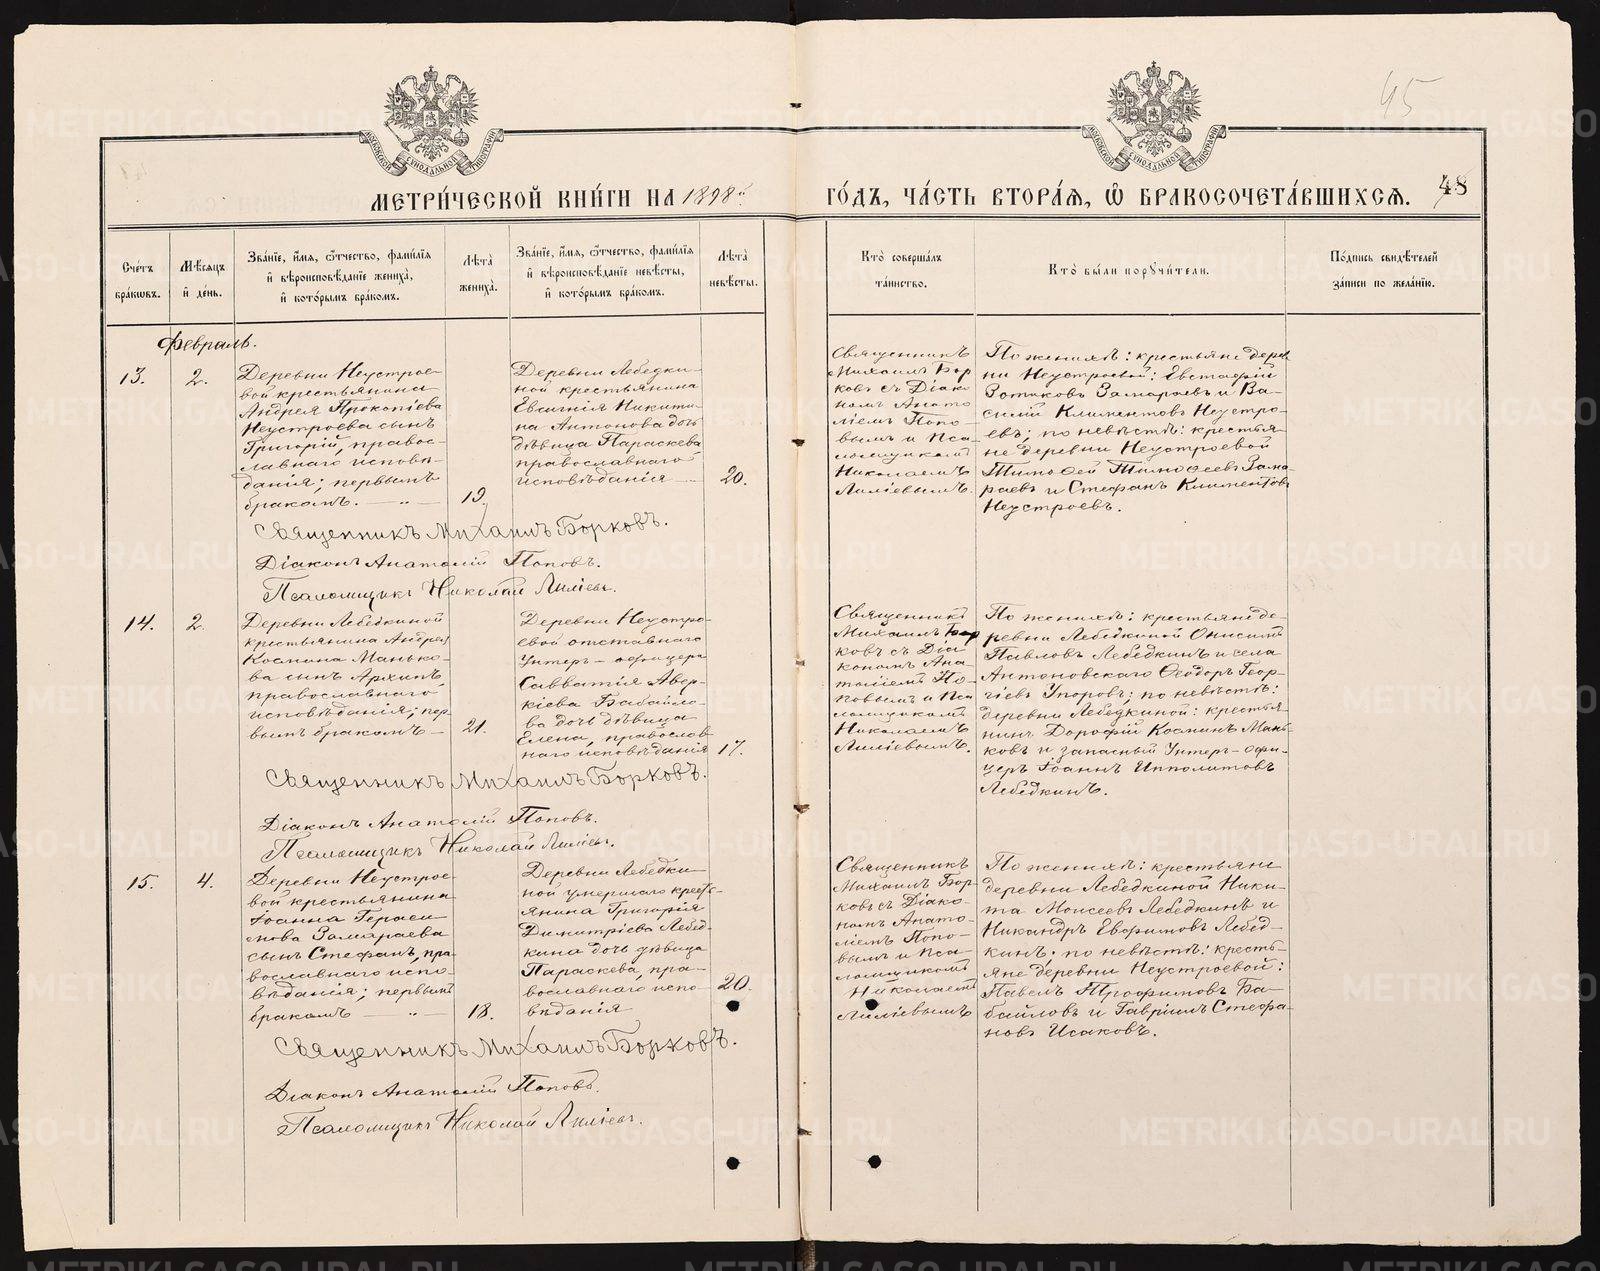 45
МЕТРИ́ЧЕСКОЙ КНИ́ГИ НА 1898й
ГО́ДЪ, ЧА́СТЬ ВТОРА́Я, Ѽ БРАКОСОЧЕТА́ВШИХСЯ.
48
МОСКОВСКОЙ СУНОДАЛЬНОЙ ТИПОГРАФІИ
МОСКОВСКОЙ СУНОДАЛЬНОЙ ТИПОГРАФІИ
Сче́тъ
бра́кѡвъ.
Мѣ́сяцъ
и҆ де́нь.
Зва́нїе, и҆́мѧ, ѻ҆́тчество, фами́лїѧ
и҆ вѣроисповѣ́данїе жениха̀,
и҆ кото́рымъ бра́комъ.
Лѣ́та
жениха̀.
Зва́нїе, и҆́мѧ, ѻ҆́тчество, фами́лїѧ
и҆ вѣроисповѣ́данїе невѣ́сты,
и҆ кото́рымъ бра́комъ.
Лѣ́та
невѣ́сты.
Кто̀ соверша́лъ
та́инство.
Кто̀ бы́ли порꙋчи́тели.
По́дпись свидѣ́телей
за́писи по жела́нїю.
Февраль.
13.
2.
Деревни Неустрое-
вой крестьянина
Андрея Прокопіева
Неустроева сынъ
Григорій, правос-
лавнаго исповѣ-
данія; первымъ
бракомъ. — „ —
19.
Деревни Лебедки-
ной крестьянина
Евсигнія Никити-
на Антонова дочь
дѣвица Параскева
православнаго
исповѣданія —
20.
Священникъ
Михаилъ Бор
ковъ съ Діако-
номъ Анато
ліемъ Попо-
вымъ и Пса-
ломщикомъ
Николаемъ
Лиліевымъ.
По женихѣ: крестьяне дерев
ни Неустроевой: Евстафій
Зотиковъ Замараевъ и Ва-
силій Климентовъ Неустро-
евъ; по невѣстѣ: крестья-
не деревни Неустроевой
Тимоѳей Тимоѳеевъ Зама-
раевъ и Стефанъ Климентовъ
Неустроевъ.
Священникъ Михаилъ Борковъ.
Діаконъ Анатолій Поповъ.
Псаломщикъ Николай Лиліевъ.
14.
2.
Деревни Лебедкиной
крестьянина Андрея
Космина Манько-
ва сынъ Архипъ,
православнаго
исповѣданія; пер-
вымъ бракомъ —
21.
Деревни Неустро-
евой отставнаго
Унтеръ-офицера
Савватія Авер-
кіева Бабайло-
ва дочь дѣвица
Елена, православ-
наго исповѣданія
17.
Священникъ
Михаилъ Бор
ковъ съ Діа
кономъ Ана-
толіемъ По-
повымъ и Пса
ломщикомъ
Николаемъ
Лиліевымъ.
По женихѣ: крестьяне де-
ревни Лебедкиной Онисимъ
Павловъ Лебедкинъ и села
Антоновскаго Ѳеодоръ Геор-
гіевъ Упоровъ; по невѣстѣ:
деревни Лебедкиной: крестья-
нинъ Дорофій Косминъ Мань-
ковъ и запасный Унтеръ-офи-
церъ Іоаннъ Ипполитовъ
Лебедкинъ.
Священникъ Михаилъ Борковъ.
Діаконъ Анатолій Поповъ.
Псаломщикъ Николай Лиліевъ.
15.
4.
Деревни Неустрое-
вой крестьянина
Іоанна Гераси-
мова Замараева
сынъ Стефанъ, пра-
вославнаго испо-
вѣданія; первымъ
бракомъ — „ —
18.
Деревни Лебедки-
ной умершаго крест-
янина Григорія
Димитріева Лебед-
кина дочь дѣвица
Параскева, пра-
вославнаго испо-
вѣданія
20.
Священникъ
Михаилъ Бор-
ковъ съ Діако-
номъ Анато-
ліемъ Попо-
вымъ и Пса-
ломщикомъ
Николаемъ
Лиліевымъ
По женихѣ: крестьяне
деревни Лебедкиной Ники-
та Моисеевъ Лебедкинъ и
Никандръ Евфимовъ Лебед-
кинъ; по невѣстѣ: кресть-
яне деревни Неустроевой:
Павелъ Трофимовъ Ба-
байловъ и Гавріилъ Стефа-
новъ Исаковъ.
Священникъ Михаилъ Борковъ.
Діаконъ Анатолій Поповъ.
Псаломщикъ Николай Лиліевъ.
METRIKI.GASO-URAL.RU